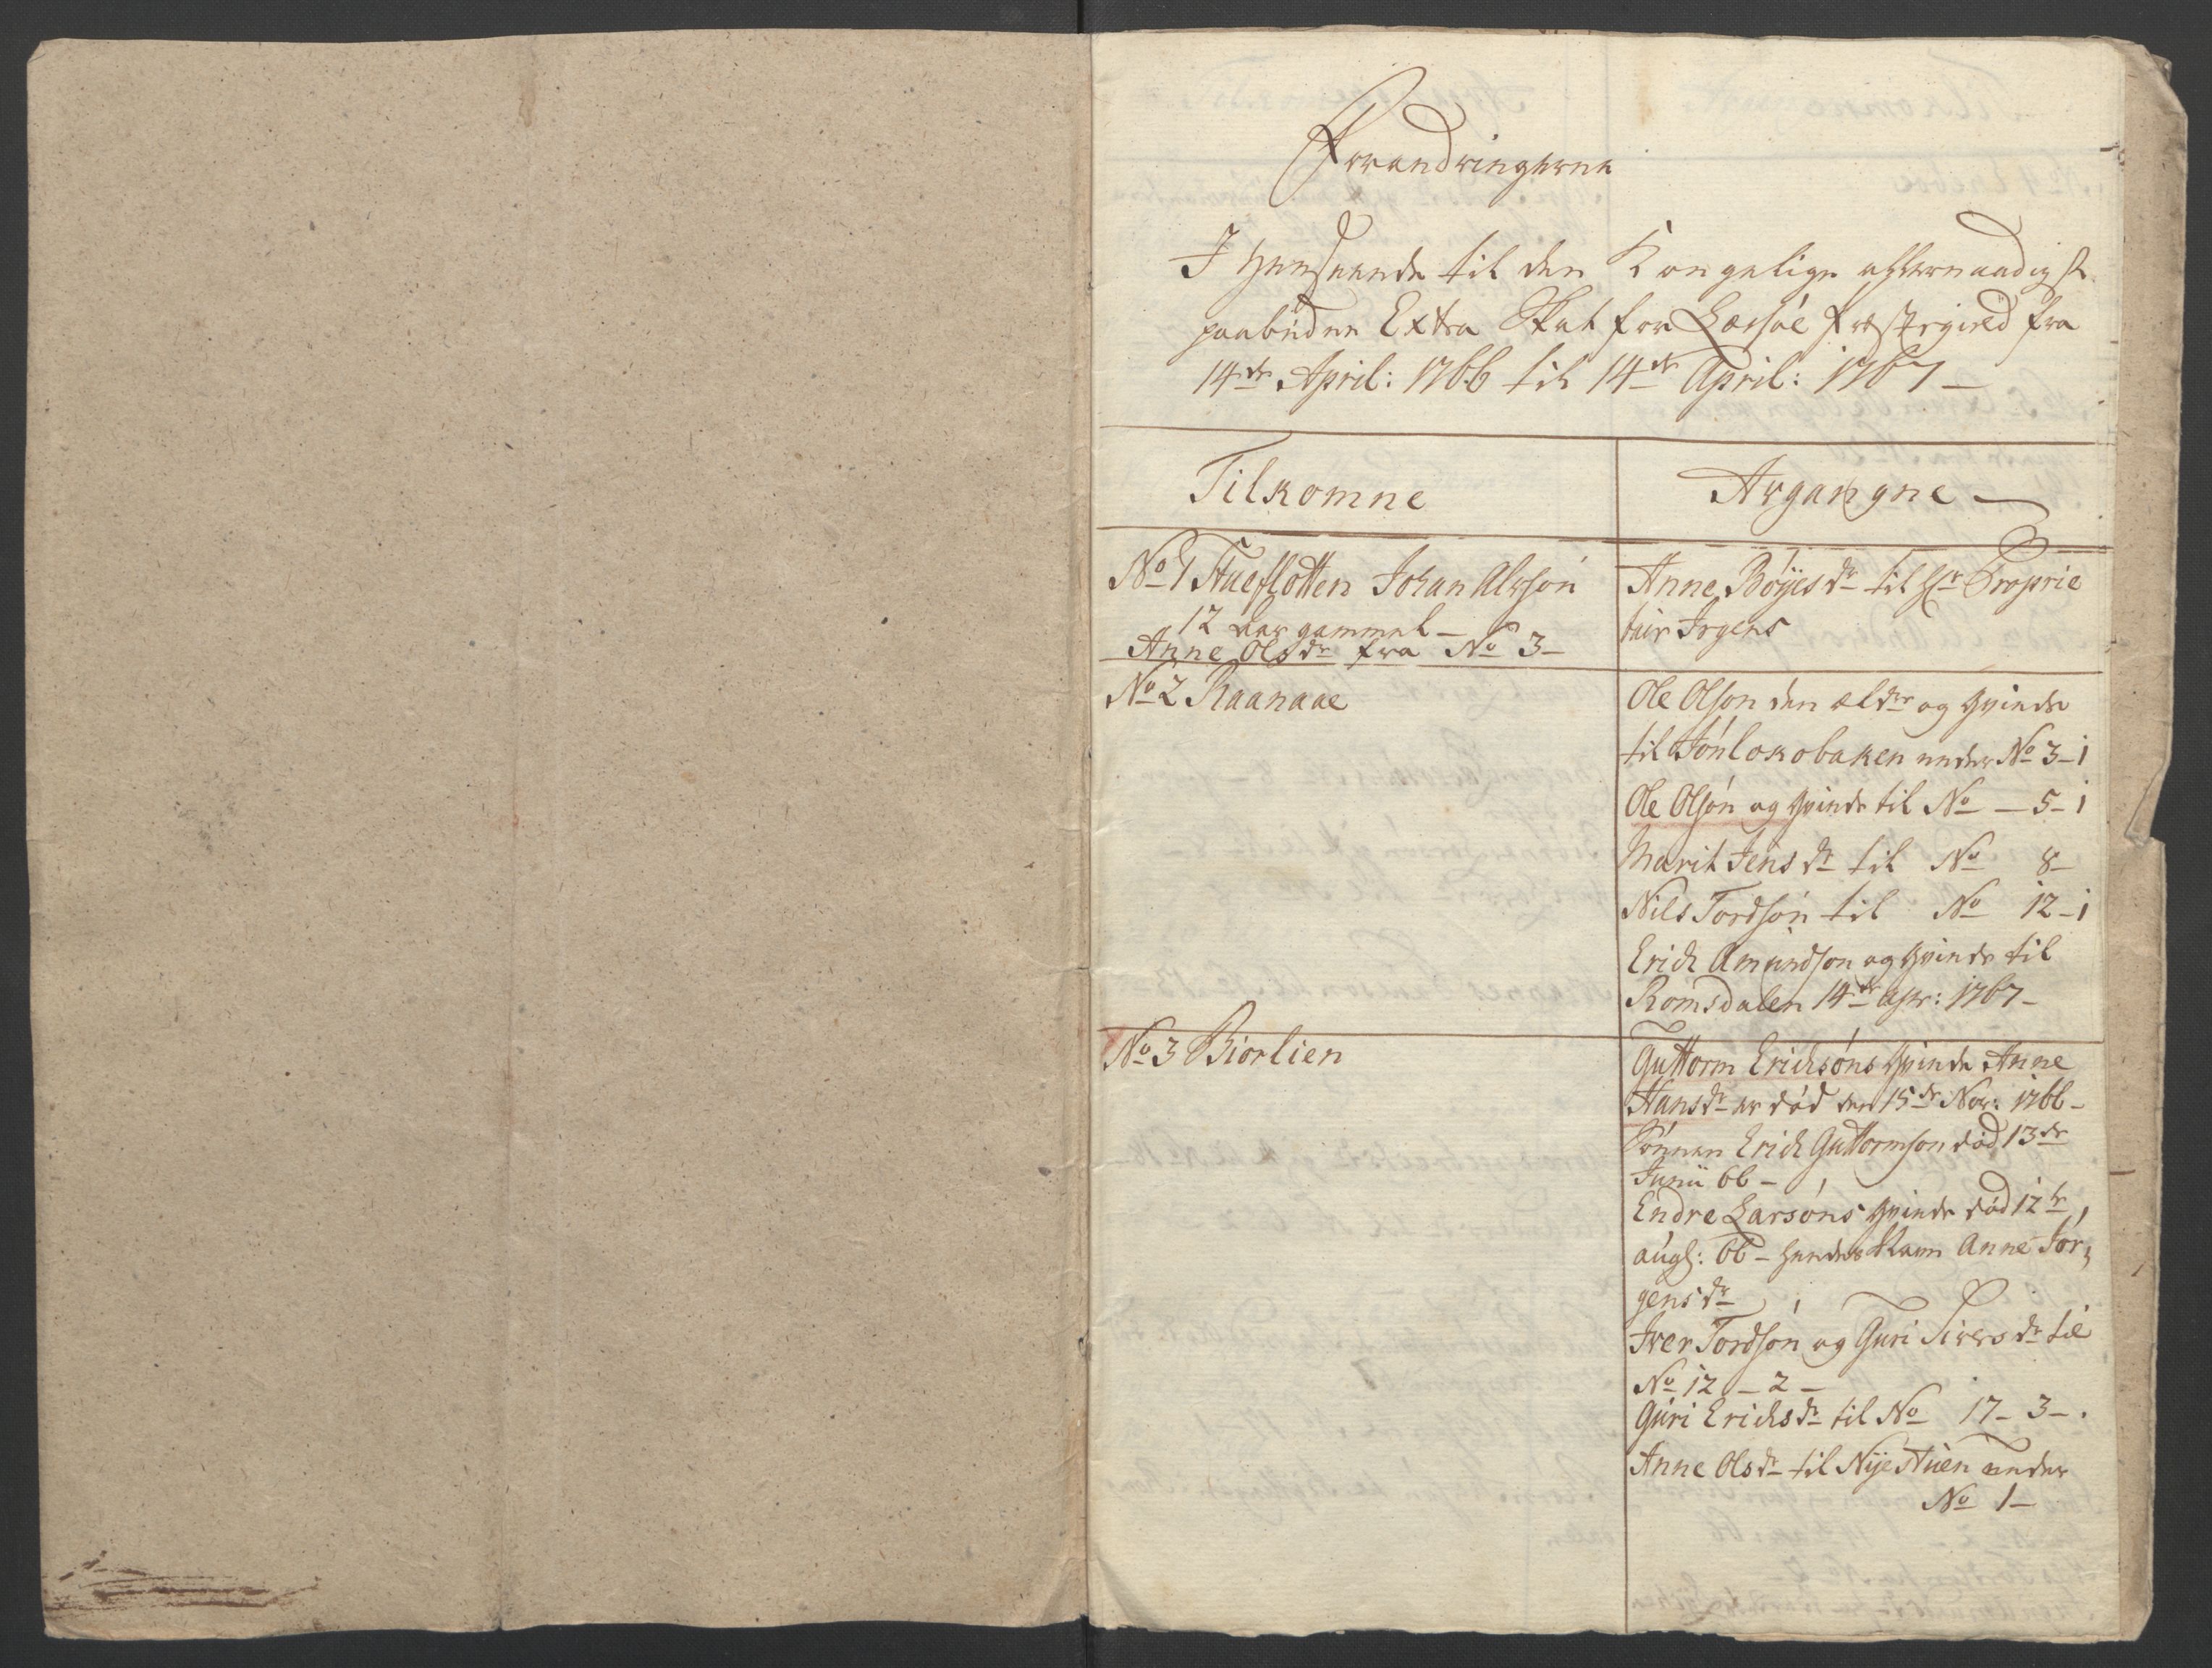 Forandringerne
I Henseende til den Kongelige allernaadigst
paabudne Extra Skat for Læsøe Præstegield fra
14de April: 1766 til 14de April: 1767 —
Tilkomne
Avgangne —
No 1 Stueflotten Johan Alvsøn
12 aar gammel —
Anne Olsdr fra No 3 —
Anne Bøyesdr til Hr Proprie
tair Irgens
No 2 Raanaae
Ole Olson den ældre og Qvinde
til under No 3 - 1
Ole Olsøn og Qvinde til No — 5 - 1
Marit Jensdr til No 8 —
Nils Tordsøn til No 12 - 1
Erich Amundson og Qvinde til
Romsdalen 14de apr: 1767 —
No 3 Biorlien
Guttorm Erichsøns Qvinde Anne
Hansdr er død den 15de Nov: 1766 —
Sønnen Erich Guttormson død 13de
Junii 66 —
Endre Larsøns Qvinde død 12te
augs: 66 — hendes Navn Anne Jør,
gensdr
Iver Tordsøn og Guri Siversdr til
No 12 — 2 —
Guri Erichsdr til No 17 - 3 —.
Anne Olsdr til Nyestuen under
No 1 —